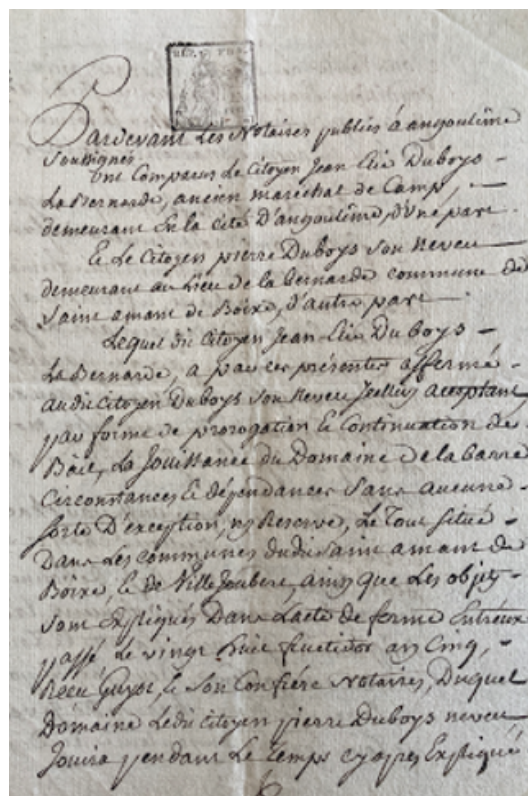 Pardevant Les Notaires publics à angoulême
soussignés
Ont Comparus Le Citoyen Jean Elie Duboys -
La Bernarde, ancien maréchal de Camp, -
demeurant En la Cité D'angoulême, d'une part
Et Le Citoyen pierre Duboys son Neveu
demeurant au Lieu de la bernarde commune de
Saint amant de Boixe, d'autre part
Lequel dit Citoyen Jean-Elie Duboys -
La Bernarde, a par ces présentes affermé -
audit Citoyen Duboys son Neveu Icelluy acceptant
par forme de prorogation Et Continuation de
Bail, La Jouissance du Domaine de la barre
Circonstances Et dépendances Sans aucune -
sorte D'exception, ny Reserve, Le Tout Situé -
Dans Les communes dudit Saint amant de
Boixe, Et de Ville Joubert, ainsy que Les objets -
sont Expliqués Dans L'acte de ferme Entreux
passé Le vingt huit fructidor an Cinq, -
Receu Guyot, Et Son Confrère Notaires, Duquel
Domaine Ledit Citoyen pierre Duboys neveu
Jouira pendant Le Temps cy apres Expliqué